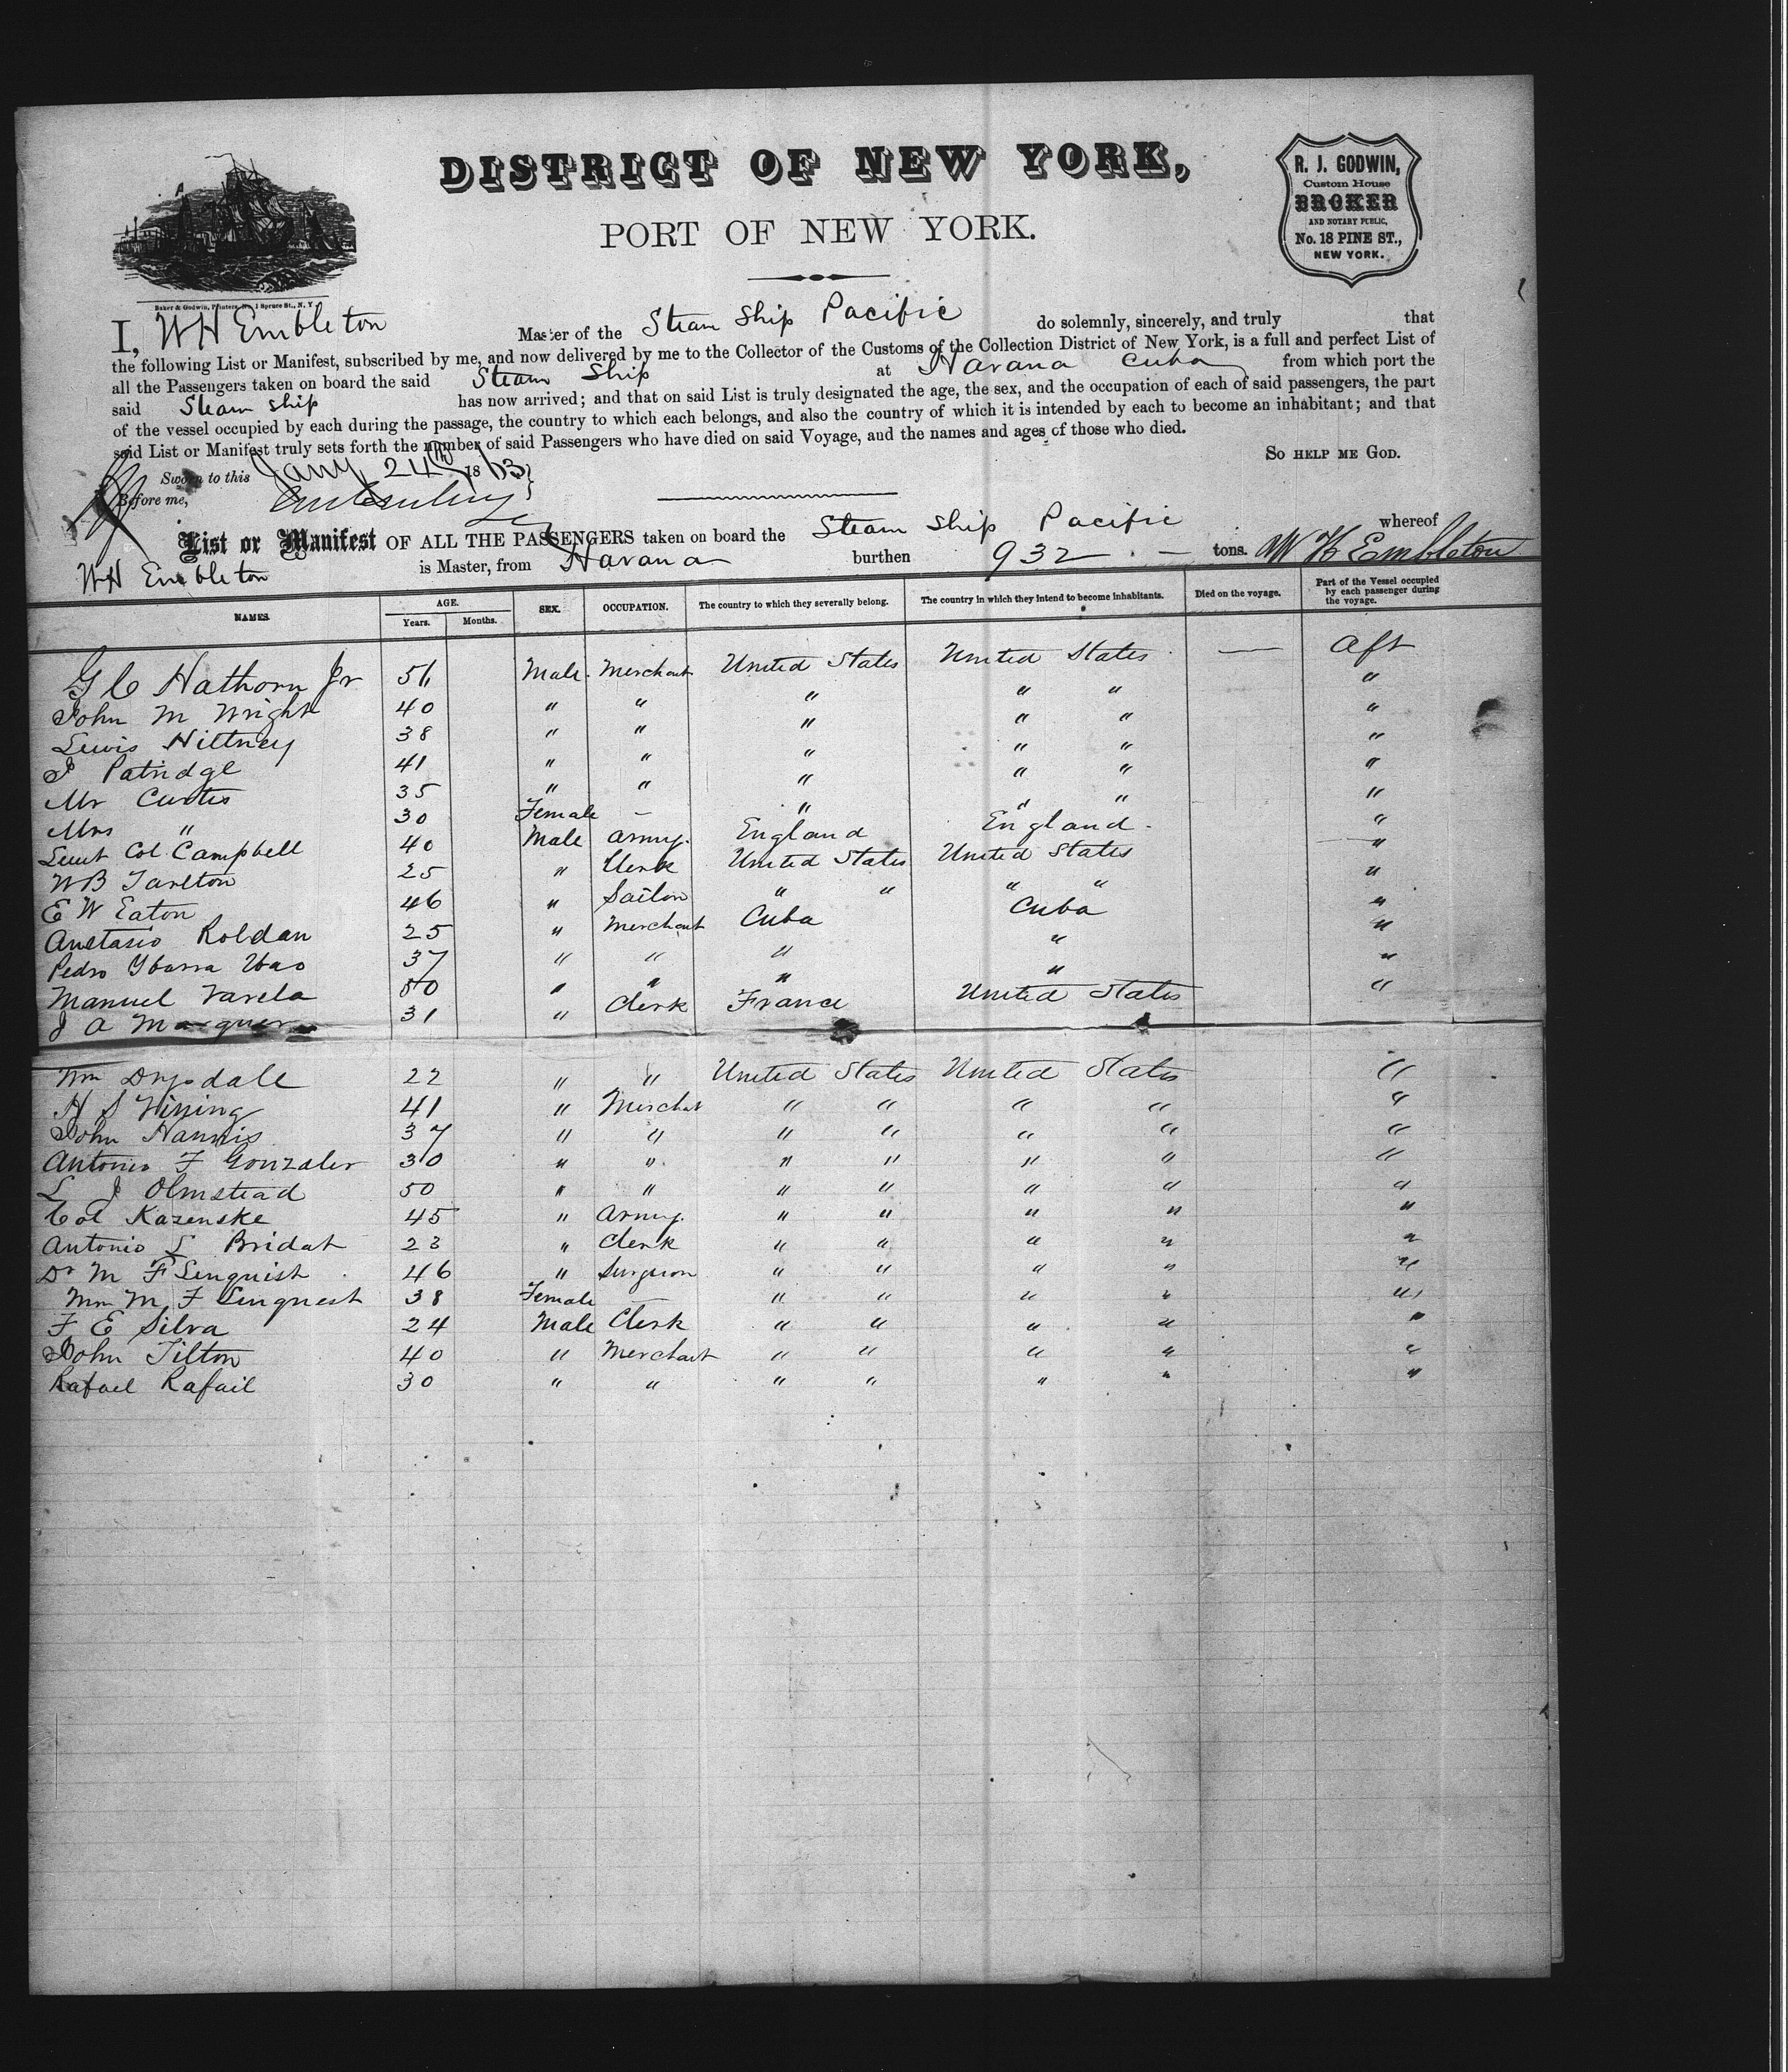 DISTRICT OF NEW YORK,
PORT OF NEW YORK.
R. J. GODWIN,
Custom House
BROKER
AND NOTARY PUBLIC,
No. 18 PINE ST.,
NEW YORK.
Baker & Godwin, Printers, No. 1 Spruce St., N. Y.
I, W H Embleton Master of the Steam Ship Pacific do solemnly, sincerely, and truly that
the following List or Manifest, subscribed by me, and now delivered by me to the Collector of the Customs of the Collection District of New York, is a full and perfect List of
all the Passengers taken on board the said Steam Ship at Havana Cuba from which port the
said Steam Ship has now arrived; and that on said List is truly designated the age, the sex, and the occupation of each of said passengers, the part
of the vessel occupied by each during the passage, the country to which each belongs, and also the country of which it is intended by each to become an inhabitant; and that
said List or Manifest truly sets forth the number of said Passengers who have died on said Voyage, and the names and ages of those who died.
SO HELP ME GOD.
Sworn to this Jany 24th 1863
Before me,
List or Manifest OF ALL THE PASSENGERS taken on board the Steam Ship Pacific whereof
W H Embleton is Master, from Havana burthen 932 tons. W H Embleton
NAMES. AGE. Years. Months. SEX. OCCUPATION. The country to which they severally belong. The country in which they intend to become inhabitants. Died on the voyage. Part of the Vessel occupied by each passenger during the voyage.
G C Hathorn Jr 51 Male Merchant United States United States — Aft
John M Wright 40 " " " " " "
Lewis Hiltney 38 " " " " " "
J Patridge 41 " " " " " "
Mr Curtis 35 " " " " " "
Mrs " 30 Female – " " " "
Lieut Col Campbell 40 Male Army England England "
W B Tarlton 25 " Clerk United States United States "
E W Eaton 46 " Sailor " " " " "
Anetasio Roldan 25 " Merchant Cuba Cuba "
Pedro Ybarra 37 " " " " "
Manuel Varela 50 " " " " "
J A Marquer 31 " Clerk France United States "
Wm Drysdale 22 " " United States United States "
H S Vining 41 " Merchat " " " " "
John Hannis 37 " " " " " " "
Antonio F Gonzales 30 " " " " " " "
L J Olmstead 50 " " " " " " "
Col Kazenske 45 " Army " " " " "
Antonio L Bridat 23 " Clerk " " " " "
Dr M F Senquist 46 " Surgeon " " " " "
Mrs M F Sinquest 38 Female — " " " " "
F E Silva 24 Male Clerk " " " " "
John Tilton 40 " Merchant " " " " "
Rafael Rafail 30 " " " " " " "